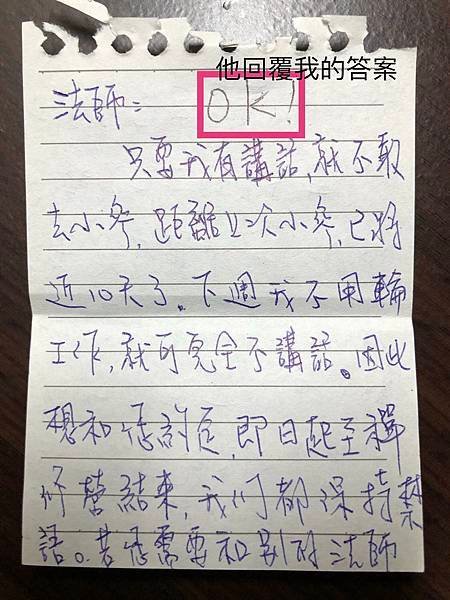 他回覆我的答案
法師： OK!
只要我有講話，就不敢
去小參，距離上次小參，已將
近10天了。下週我不用輪
工作，就可完全不講話。因此
想和您約定，即日起至禪
修營結束，我們都保持禁
語。若您需要和別的法師